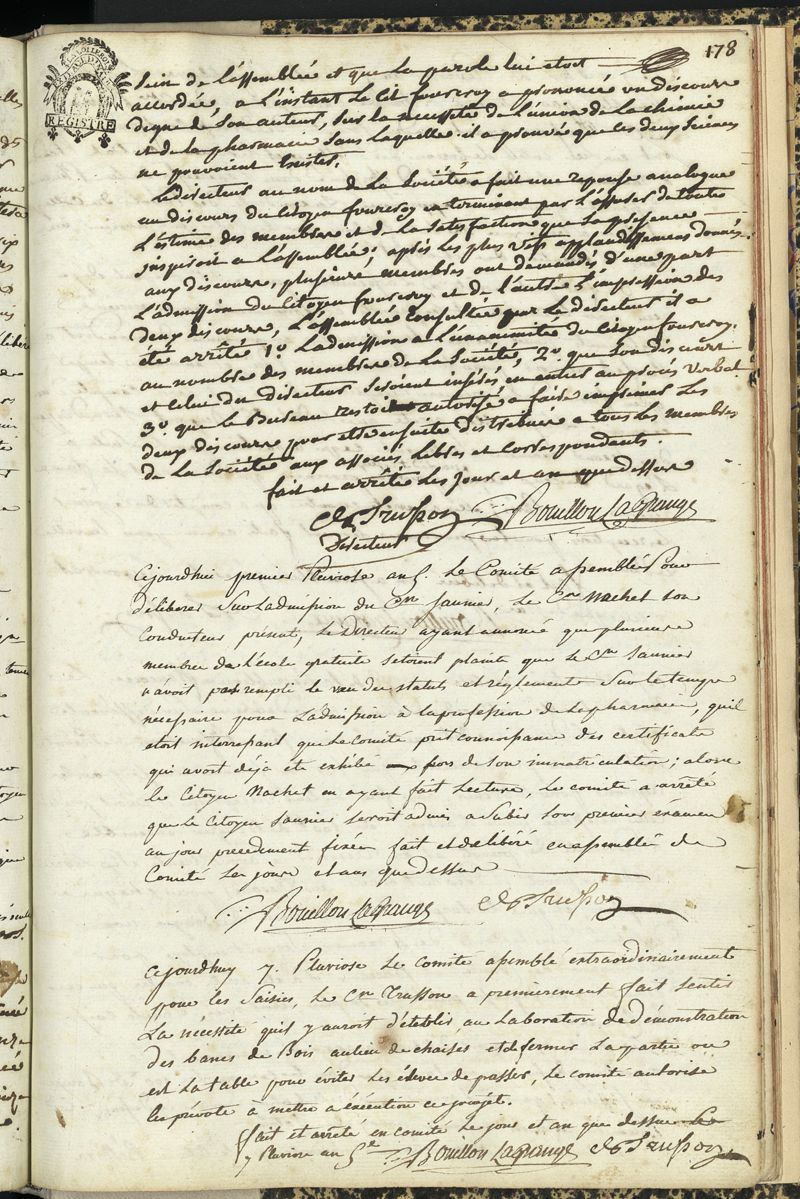 178
REGISTRE
Sein de l'assemblée et que la parole lui etoit
accordée, a L'instant le Cit fourcroy a prononcé un discours
digne de Son auteur, Sur la necessité de l'union de la chimie
et de la pharmacie Sans laquelle il a prouvé que les deux Sciences
ne pouvoient Exister.
Le directeur au nom de La Société a fait une reponse analogue
au discours du Citoyen fourcroy en terminant par l'assurer de toute
L'estime des membres et de la Satisfaction que Sa presence
inspiroit a L'assemblée; après les plus vifs applaudissemens donnés
aux discours, plusieurs membres ont demandés d'une part
L'admission du Citoyen fourcroy et de l'autre l'impression des
deux discours, L'assemblée Consultée par Le directeur il a
été arrêté 1.o Ladmission a L'unanimité du Citoyen fourcroy.
au nombre des membres de la Société, 2.o que Son discours
et Celui du directeur Seroient insérés en entier au procès verbal
3.o que le Bureau restoit autorisé a faire imprimer les
deux discours pour etre ensuite distribués a tous les membres
de La Société aux associés Libres et Correspondants.
fait et arrêté Les Jour et an que dessus
Ch Trusson Bouillon LaGrange
Directeur
Cejourdhui premier Pluviose an 5. Le Comité assemblé Pour
déliberer Sur Ladmission du Cen Saunier, Le Cen Nachet Son
Conducteur présent, Le Directeur ayant annoncé que plusieurs
membres de l'école gratuite setoient plaint que le Cen Saunier
n'avoit pas rempli le vœu des statuts et réglements Sur le temps
nécessaire pour L'admission à la profession de La pharmacie, quil
etoit interressant que Le Comité prit connoissance des certificats
qui avoit déja eté exhibé lors de Son immatriculation; alors
le Citoyen Nachet en ayant fait Lecture, le comité a arrêté
que Le Citoyen Saunier seroit admis a Subir Son premier éxamen
au jour precedment fixée fait et déliberé en assemblée de
Comité Les jours et ans que dessus
Bouillon LaGrange Ch Trusson
Cejourdhuy 7. Pluviose Le Comité assemblé extraordinairement
pour les Saisies, Le Cen Trusson a premierement fait Sentir
La nécessité quil y auroit d'établir au Laboratoire de démonstration
des bancs de Bois au lieu de chaises et de fermer La partie ou
est La table pour éviter Les éleves de passer, Le comité autorise
les prévots à mettre à éxécution ce projet.
fait et arreté en comité Le jour et an que dessus
7 Pluviose an 5e Bouillon LaGrange Ch Trusson